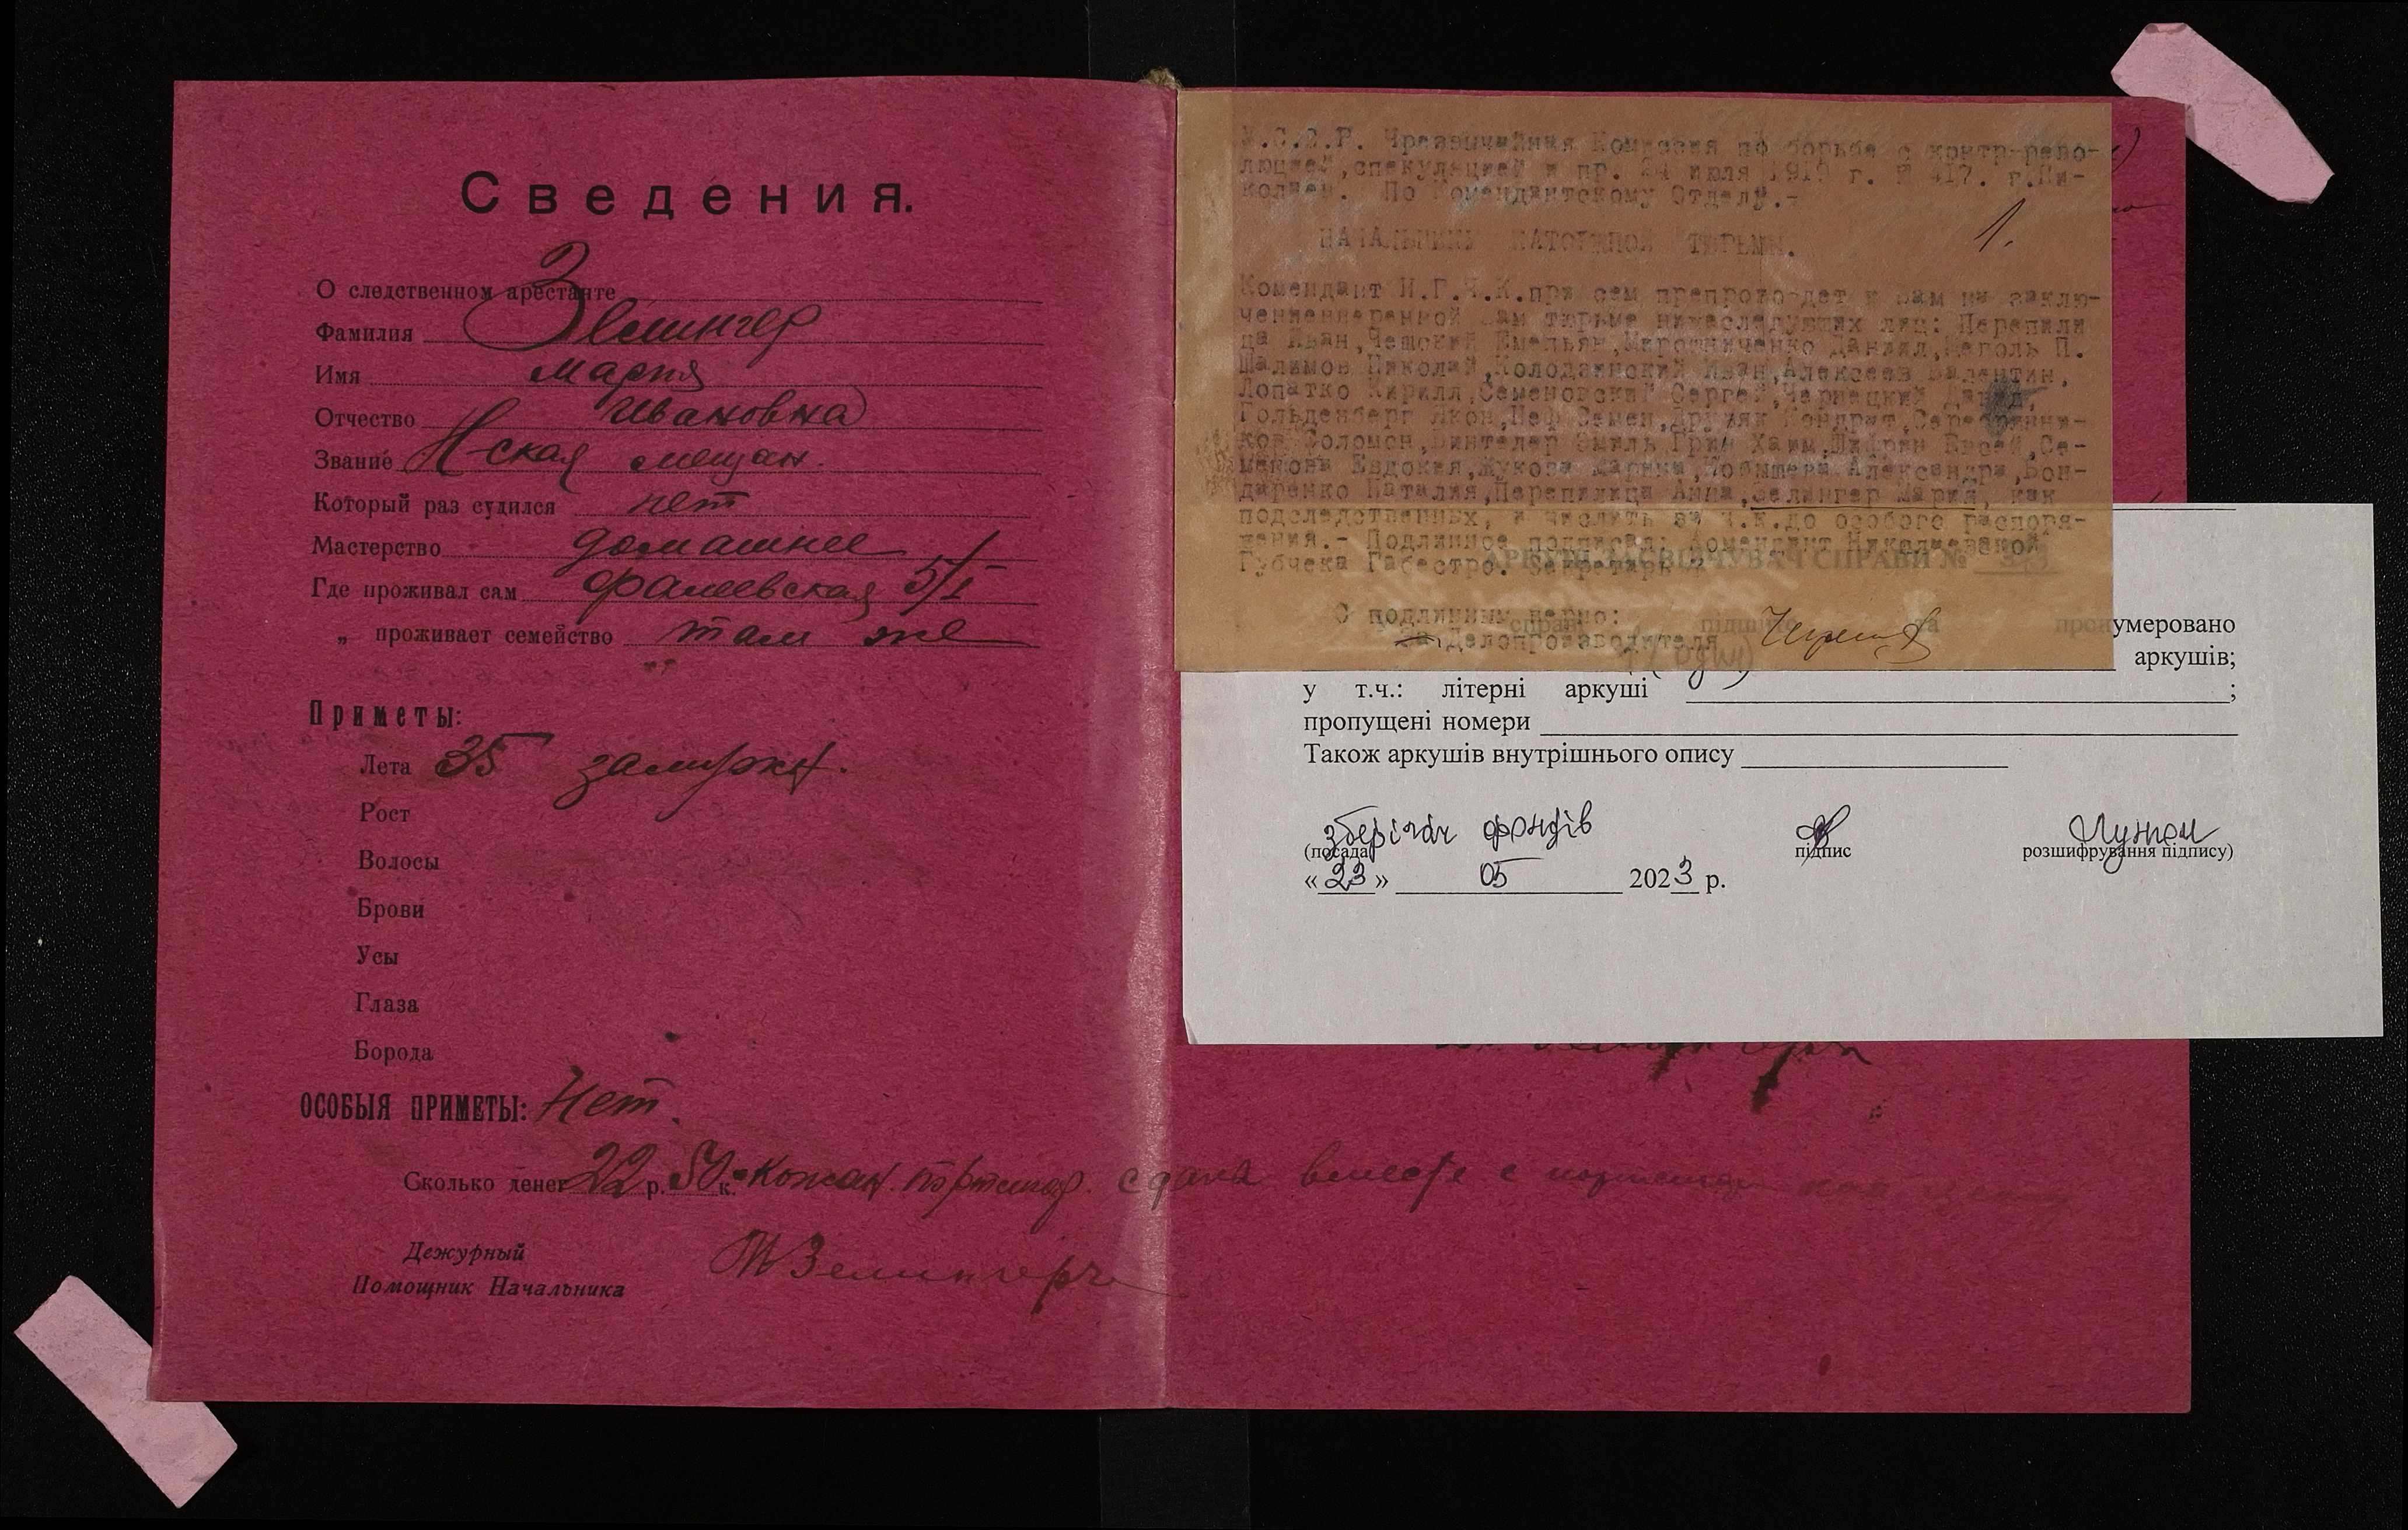 Сведения.
О следственном арестанте
Фамилия Зелингер
Имя Мария
Отчество Ивановна
Звание Н-ская мещан.
Который раз судился нет
Мастерство домашнее
Где проживал сам Фалеевская 5/1
„ проживает семейство там же
Приметы:
Лета 35 замужн.
Рост
Волосы
Брови
Усы
Глаза
Борода
ОСОБЫЯ ПРИМЕТЫ: Нет.
Сколько денег 22 р. 50 к. Кожан. портсигар. сдала вместе с
Дежурный
Помощник Начальника
М Зелингер
У.С.С.Р. Чрезвычайная Комиссия по борьбе с контр-рево-
люцией,спекуляцией и пр. 24 июля 1919 г. № 417. г.Ни-
колаев. По Комендантскому Отделу.-
1.
НАЧАЛЬНИКУ КАТОРЖНОЙ ТЮРЬМЫ.
Комендант Н.Г.Ч.К.при сем препровождает к Вам на заклю-
чение вверенной Вам тюрьме нижеследующих лиц: Перепили
ца Иван, Емельян,Мирошниченко Даниил,Гоголь П.
Шалимов Николай,Колодзинский Иван,Алексеев Валентин,
Лопатко Кирилл,Семеновский Сергей,Чарнецкий Давид,
Гольденберг Якон,Неф Семен,Дрышяк Кондрат,Серебрянни-
ков Соломон,Винтелер Эмиль Грин Хаим,Шифрин Евсей,Се-
менова Евдокия,Жукова Марина, Александра,Бон-
даренко Наталия,Перепилица Анна,Зелингер Мария, как
подследственных, и числить за Ч.К.до особого распоря-
жения.- Подлинное подписал: Комендант Николаевской
Губчека Габестро. Секретарь
С подлинным верно:
Делопроизводителя
АРКУШ-ЗАСВІДЧУВАЧ СПРАВИ №
справі підшито та пронумеровано
1 (один) аркушів;
у т.ч.: літерні аркуші ;
пропущені номери
Також аркушів внутрішнього опису
зберігач фондів
(посада) підпис розшифрування підпису)
«23» 05 2023 р.